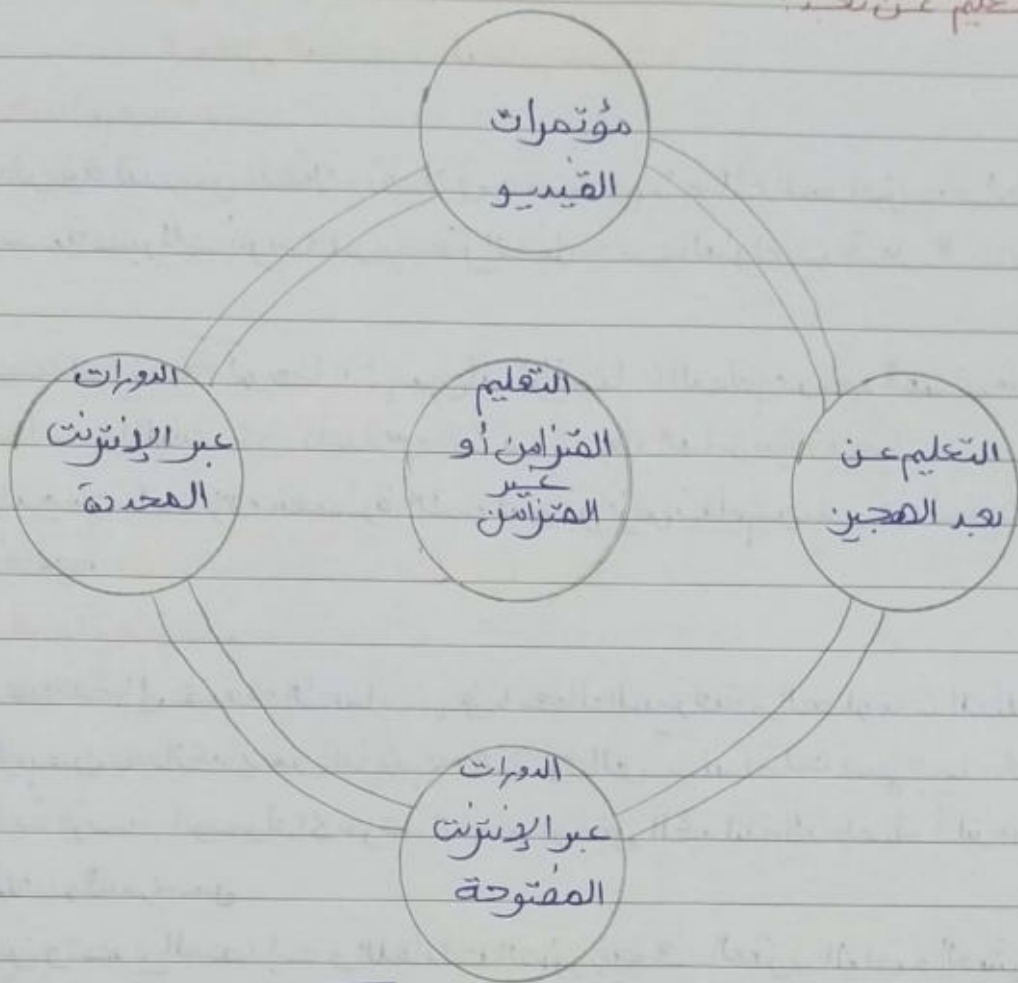 مؤتمرات
الفيديو
الدورات
عبر الإنترنت
المحددة
التعليم
المتزامن أو
غير
المتزامن
التعليم عن
بعد الهجين
الدورات
عبر الإنترنت
المفتوحة